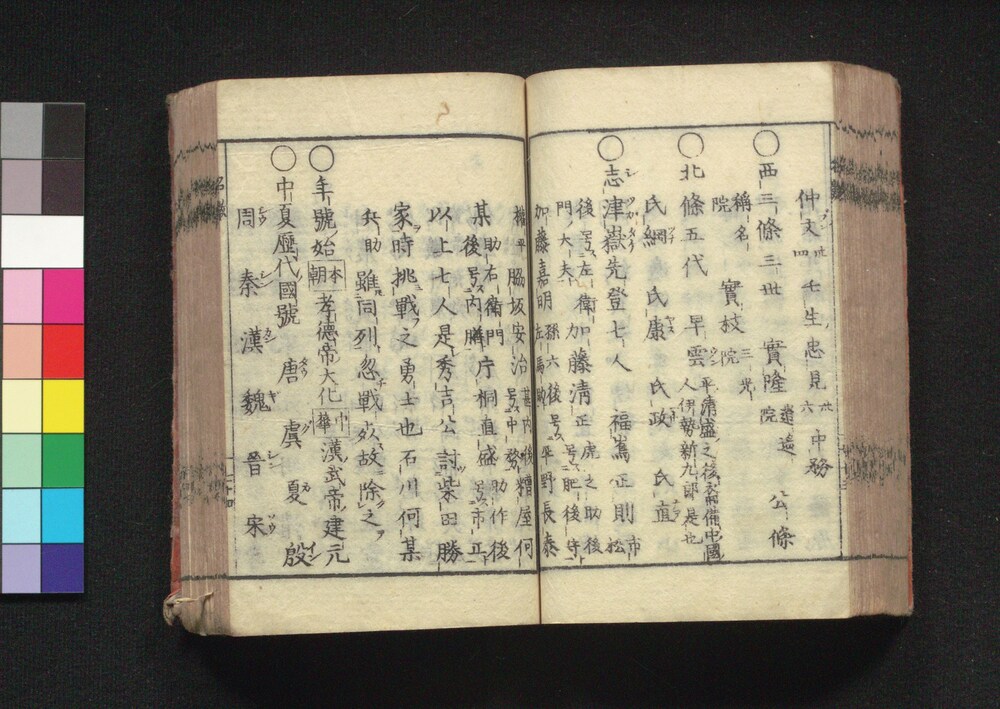 仲文 壬生忠見 中務
○西三條三世 實隆 逍遙院 公條
稱名院 實枝 三光院
○北條五代 早雲 平清盛之後裔備中國人伊勢新九郎是也
氏綱 氏康 氏政 氏直
○志津嶽先登七人 福嶌正則 市松
後号左衛門大夫 加藤清正 虎之助後号肥後守
加藤嘉明 孫六後号左馬助 平野長泰
權平 脇坂安治 甚内後号中務 糟屋何
某 助右衛門後号内膳 片桐直盛 助作後号市正
以上七人是秀吉公討柴田勝
家時挑戰之勇士也石川何某
兵助 雖同列忽戰死故除之
○年號始 本朝 孝德帝大化 中華 漢武帝建元
○中夏歷代國號 唐 虞 夏 殷
周 秦 漢 魏 晉 宋